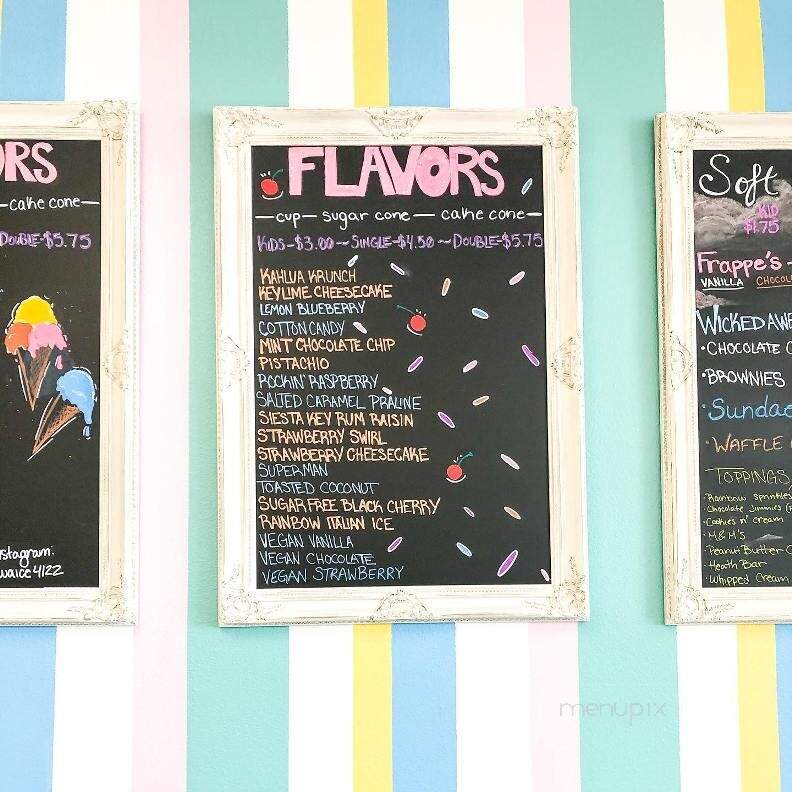 ORS
cake cone—
DOUBLE-$5.75
stagram:
waice4122
FLAVORS
—cup— sugar cone — cake cone—
KIDS-$3.00 ~ SINGLE-$4.50 ~ DOUBLE-$5.75
KAHLUA KRUNCH
KEY LIME CHEESECAKE
LEMON BLUEBERRY
COTTON CANDY
MINT CHOCOLATE CHIP
PISTACHIO
ROCKIN' RASPBERRY
SALTED CARAMEL PRALINE
SIESTA KEY RUM RAISIN
STRAWBERRY SWIRL
STRAWBERRY CHEESECAKE
SUPERMAN
TOASTED COCONUT
SUGAR FREE BLACK CHERRY
RAINBOW ITALIAN ICE
VEGAN VANILLA
VEGAN CHOCOLATE
VEGAN STRAWBERRY
Soft
KID
$1.75
Frappe's -
VANILLA CHOCOL
WICKED AWE
•CHOCOLATE C
•BROWNIES
•Sundae
•WAFFLE
TOPPINGS
•Rainbow sprinkles
•Chocolate Jimmies
•Cookies n' cream
•M&M's
•Peanut Butter C
•Heath Bar
•Whipped Cream
menupix